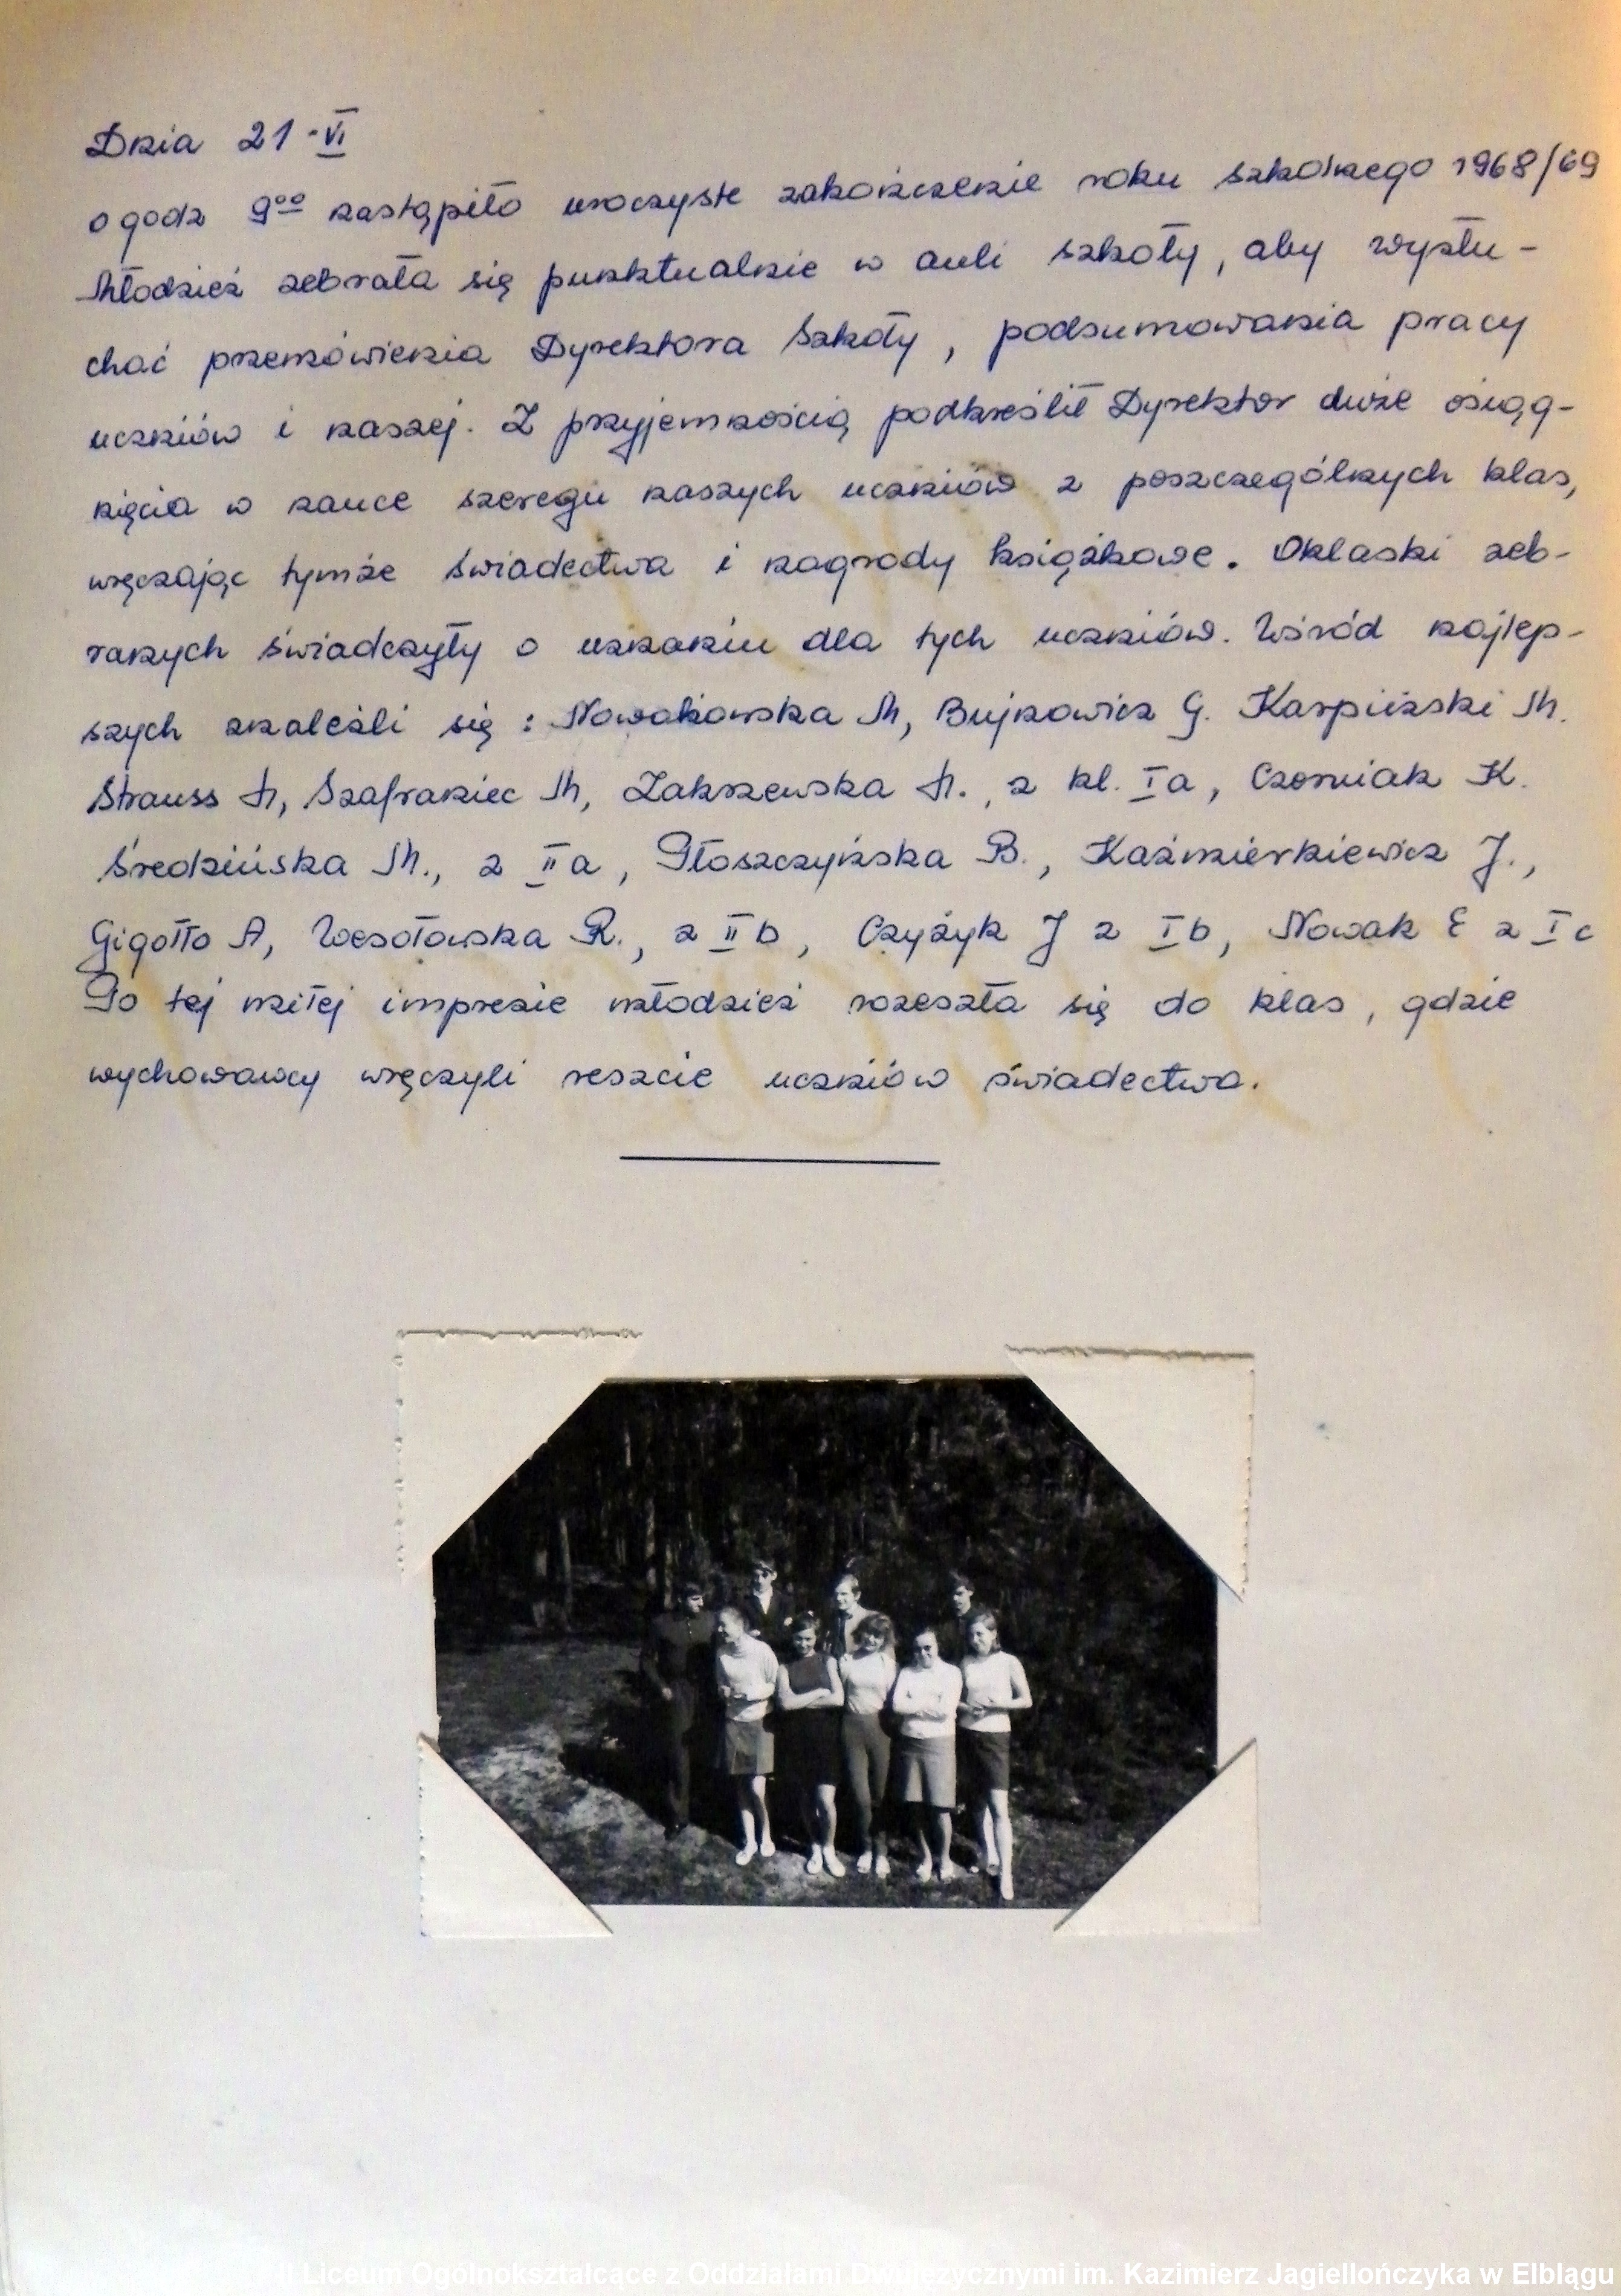 Dnia 21·VI
o godz 9⁰⁰ nastąpiło uroczyste zakończenie roku szkolnego 1968/69
Młodzież zebrała się punktualnie w auli szkoły, aby wysłu-
chać przemówienia Dyrektora Szkoły, podsumowania pracy
uczniów i naszej. Z przyjemnością podkreślił Dyrektor duże osiąg-
nięcia w nauce szeregu naszych uczniów z poszczególnych klas,
wręczając tymże świadectwa i nagrody książkowe. Oklaski zeb-
ranych świadczyły o uznaniu dla tych uczniów. Wśród najlep-
szych znaleźli się: Nowakowska M, Bujnowicz G. Karpiński M.
Strauss A, Szafraniec M, Zakrzewska A., z kl. I a, Czerniak K.
Średzińska M., z II a, Płoszczyńska B., Kaźmierkiewicz J.,
Gigołło A, Wesołowska R., z II b, Czyżyk J z I b, Nowak E z I c
Po tej miłej imprezie młodzież rozeszła się do klas, gdzie
wychowawcy wręczyli reszcie uczniów świadectwa.
Liceum Ogólnokształcące z Oddziałami Dwujęzycznymi im. Kazimierz Jagiellończyka w Elblągu